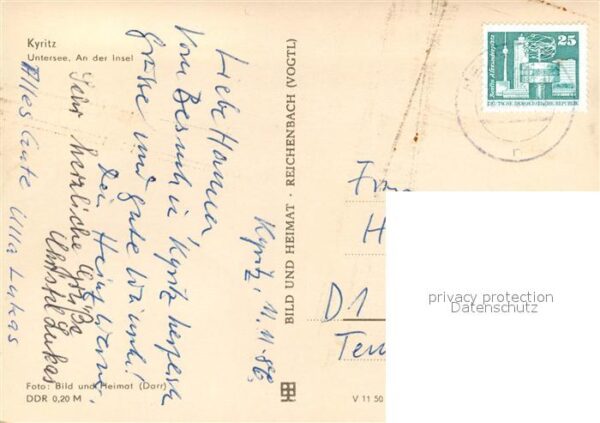 Kyritz
Untersee, An der Insel
Kyritz, 11.11.86
Liebe Hanna
Vom Besuch in Kyritz herzliche
Grüße und gute Wünsche!
Dein Heinz Werner
Sehr herzliche Grüße
Christel Lukas
Alles Gute Ulla Lukas
Foto: Bild und Heimat (Darr)
DDR 0,20 M
BILD UND HEIMAT · REICHENBACH (VOGTL)
V 11 50
25
Berlin, Alexanderplatz
DEUTSCHE DEMOKRATISCHE REPUBLIK
Frau
H
D1
privacy protection
Datenschutz